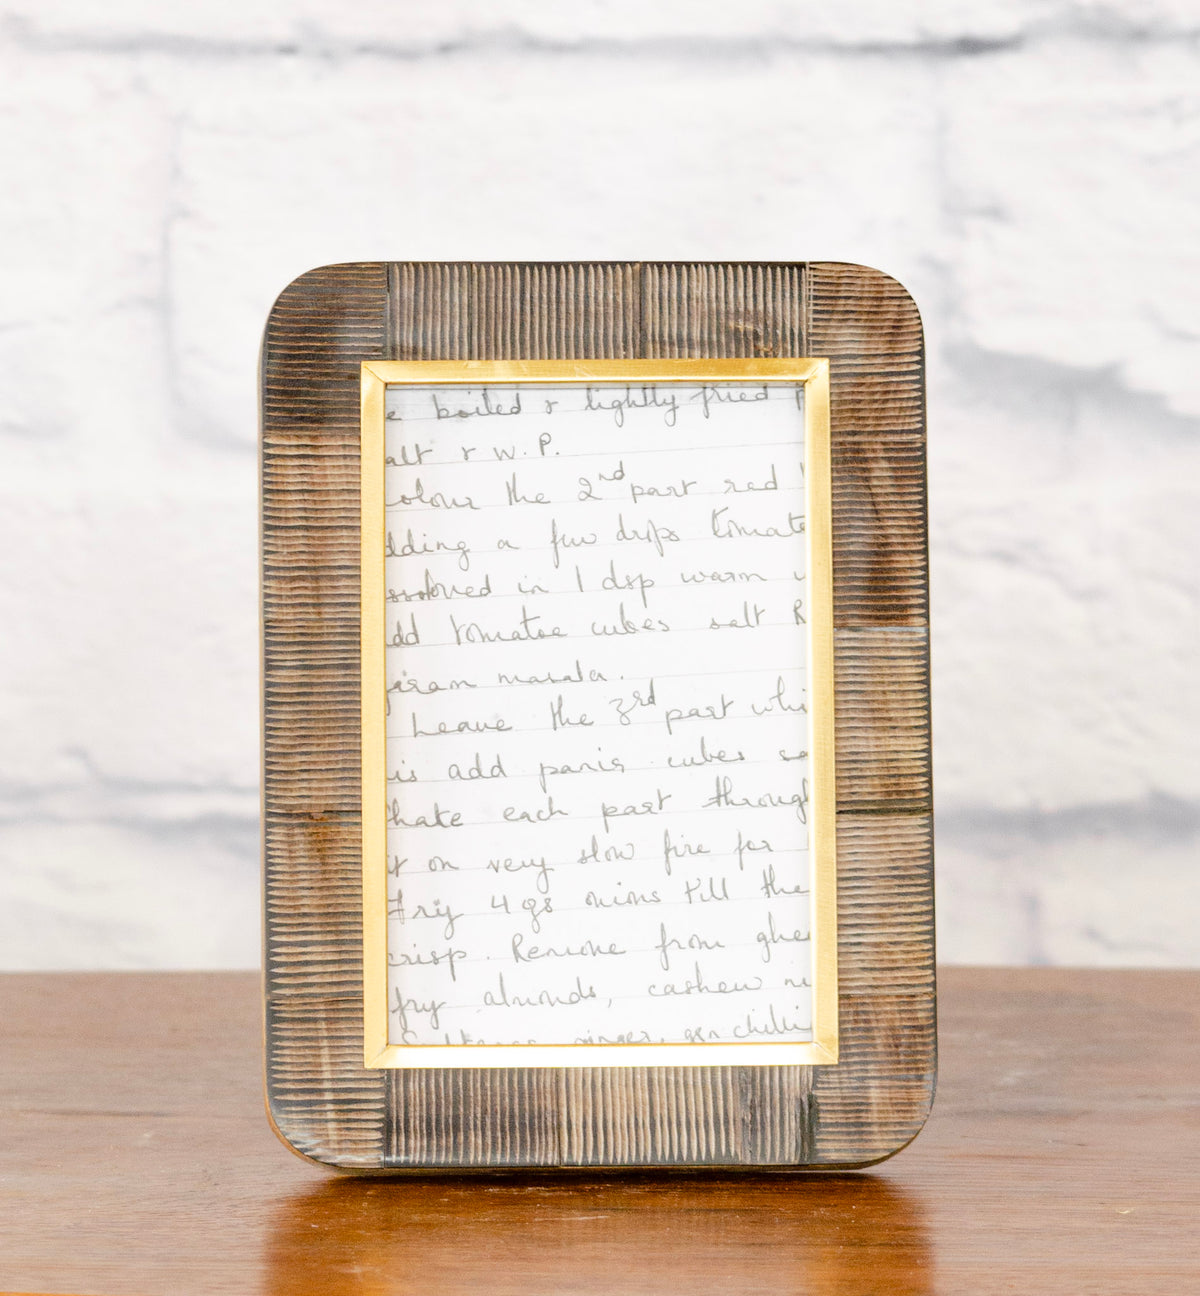 e boiled & lightly fried
alt & W.P.
olour the 2nd part red
dding a few drops tomato
ssolved in 1 dsp warm
dd tomatoe cubes salt R
garam masala.
Leave the 3rd part whi
is add panir cubes sa
hake each part through
it on very slow fire for
Fry 4 onions till the
crisp. Remove from ghee
fry almonds, cashew nu
ginger, grn chilli